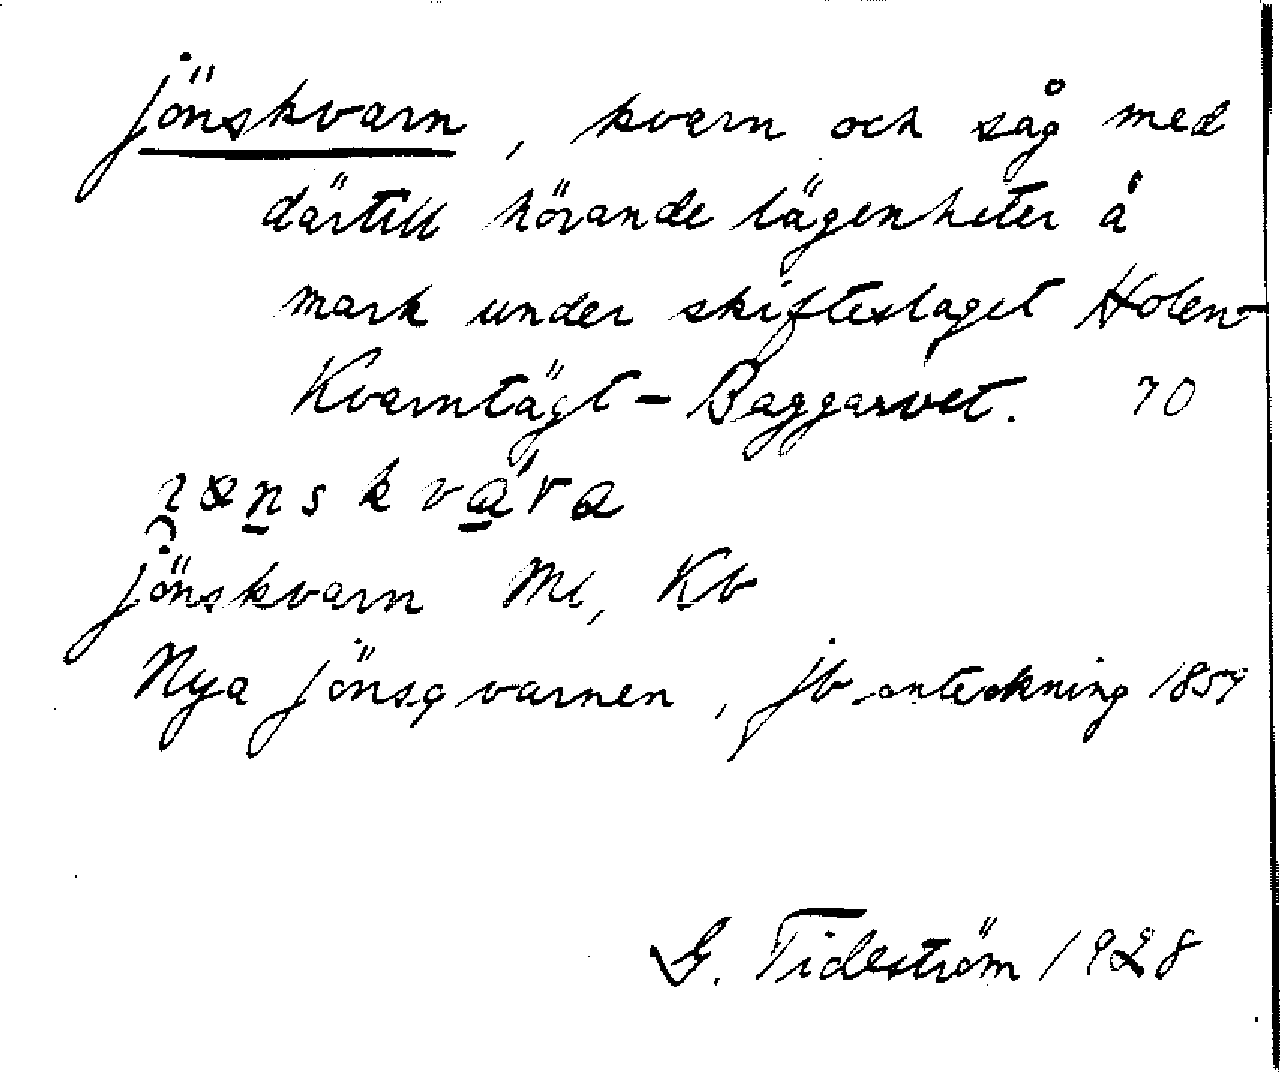 jönskvarn, kvarn och såg med
därtill hörande lägenheter å
mark under skifteslaget Holen-
Kvarntägt - Baggarvet. 70
jönskvarn Ml, Kb
Nya jönsqvarnen, jb anteckning 1859
G. Tideström 1928